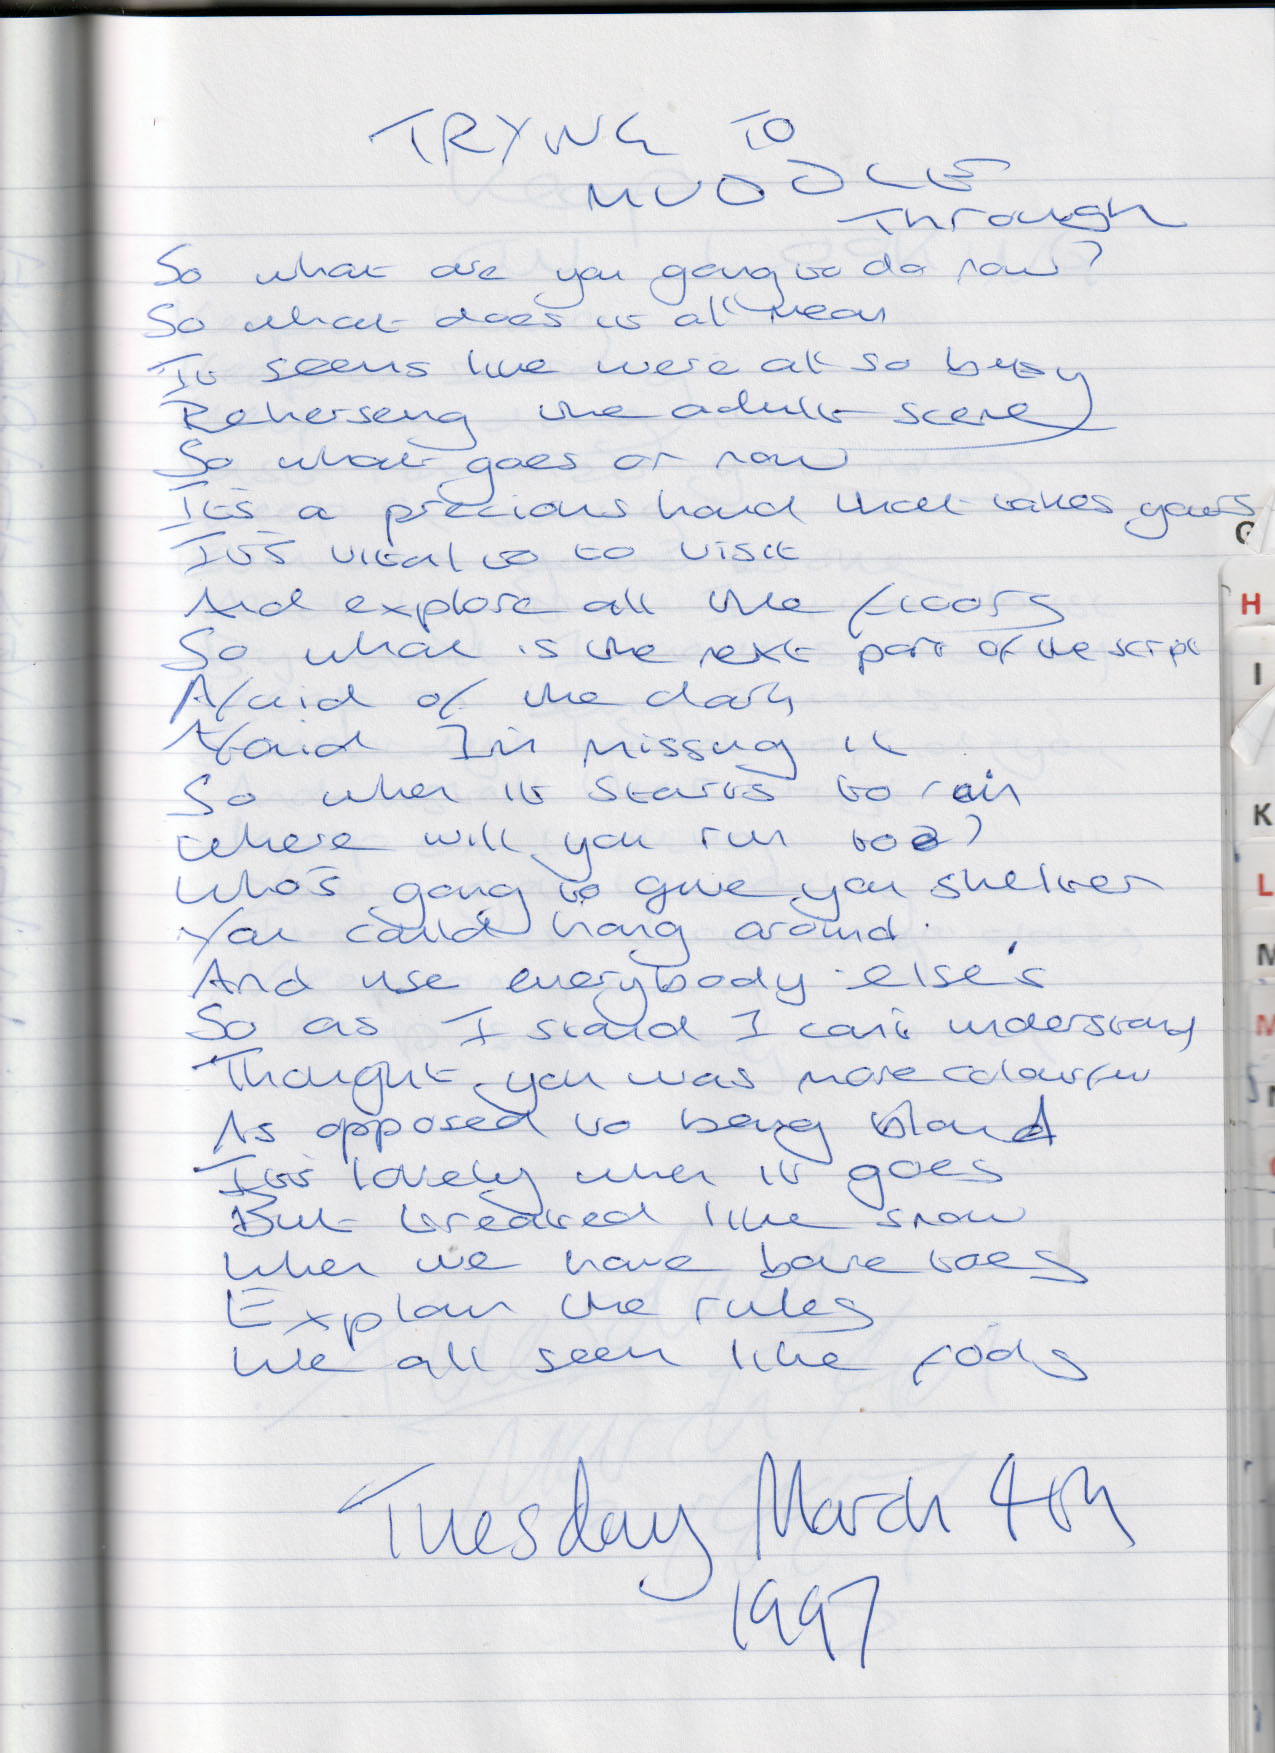 TRYING TO
MUDDLE
Through
So what are you going to do now?
So what does it all mean
It seems like were all so busy
Reherseng the adult scene
So what goes on now
It's a precious hand that takes yours
It's vital to to visit
And explore all the floors
So what is the next part of the script
Afraid of the dark
Afraid I'm missing it
So when it starts to rain
Where will you run too?
Who's going to give you shelter
You could hang around.
And use everybody else's
So as I stand I can't understand
Thought you was more colourful
As opposed to being bland
It's lovely when it goes
But treated like snow
When we have bare toes
Explain the rules
We all seem like fools
Tuesday March 4th
1997
G
H
I
K
L
M